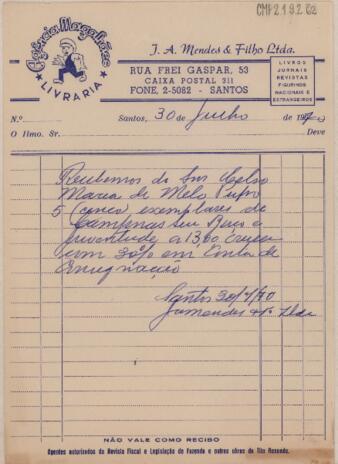 CMP2.1.9.2.62
Agência Magalhães
LIVRARIA
J. A. Mendes & Filho Ltda.
RUA FREI GASPAR, 53
CAIXA POSTAL 211
FONE, 2-5082 - SANTOS
LIVROS
JORNAIS
REVISTAS
FIGURINOS
NACIONAIS E
ESTRANGEIROS
N.º
Santos, 30 de Julho de 19
O Ilmo. Sr. Deve
Recebemos do Snr Celso
Maria de Mello Pupo
5 (cinco) exemplares de
Campinas Seu Berço e
Juventude a 13,00
com 30% em Conta de
Consignação
Santos 30/7/70
J a mendes & Fº Ltda
NÃO VALE COMO RECIBO
Agentes autorizados da Revista Fiscal e Legislação de Fazenda e outras obras de Tito Rezende.